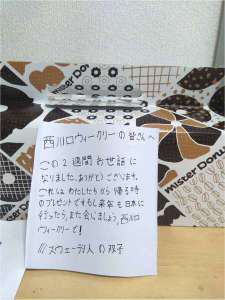 mister Donut
西川口ウィークリーの皆さんへ
この2週間お世話に
なりました。ありがとうございます。
これはわたしたちから帰る時
のプレゼントですもし来年も日本に
行ったら、また会いましょう、西川口
ウィークリーで!
スウェーデン人の双子
mister Donut